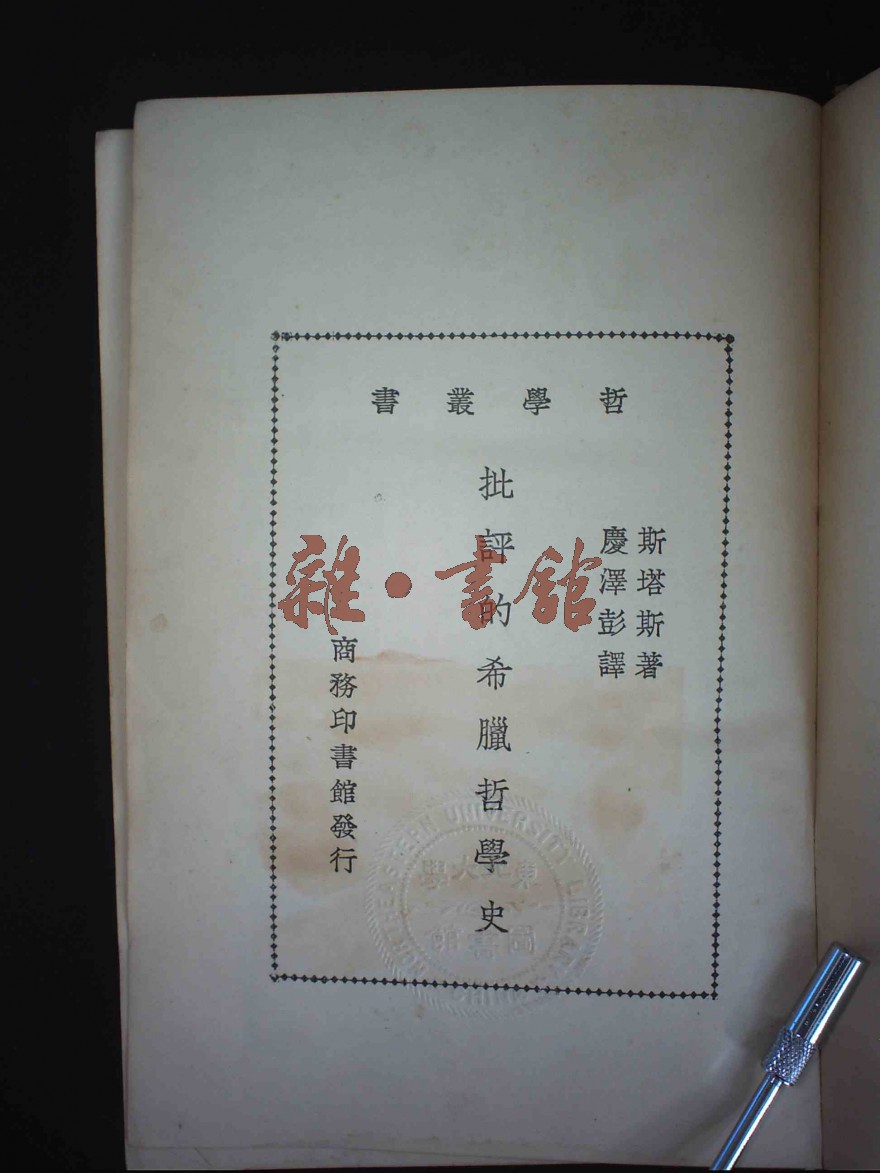 哲學叢書
斯塔斯著
慶澤彭譯
批評的希臘哲學史
商務印書館發行
雜·書館
NORTHEASTERN UNIVERSITY LIBRARY
東北大學
圖書館